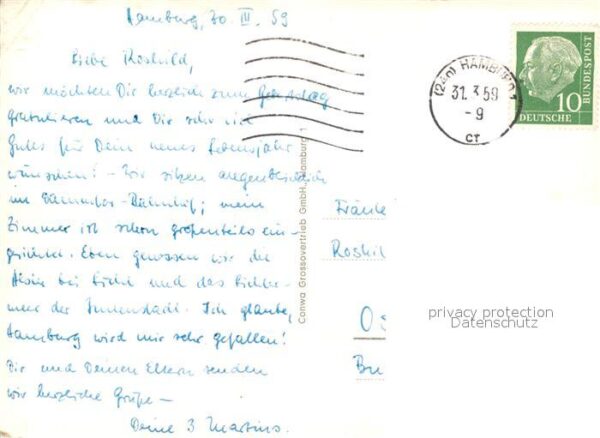 Hamburg, 30. III. 59
Liebe Roshild,
wir möchten Dir herzlich zum Geburtstag
gratulieren und Dir sehr viel
Gutes für Dein neues Lebensjahr
wünschen! - Wir sitzen augenblicklich
im Dammtor-Bahnhof; mein
Zimmer ist schon größtenteils ein-
gerichtet. Eben genossen wir die
Alster bei Licht und das Lichter-
meer der Innenstadt. Ich glaube,
Hamburg wird mir sehr gefallen!
Dir und Deinen Eltern senden
wir herzliche Grüße -
Deine 3 Martins.
Conwa Grossovertrieb GmbH., Hamburg
(24a) HAMBURG 1
31. 3.59
- 9
CT
10
DEUTSCHE
BUNDESPOST
Fräule
Roshil
Os
Bu
privacy protection
Datenschutz